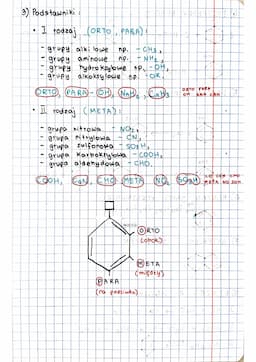 3) Podstawniki:
• I rodzaj (ORTO, PARA)
- grupy alkilowe np. -CH3,
- grupy aminowe np. -NH2,
- grupy hydroksylowe np. -OH,
- grupy alkoksylowe np. -OR.
ORTO, PARA - OH, NH2, CnHn
ORTO PARA
• II rodzaj (META):
- grupa nitrowa -NO2,
- grupa nitrylowa -CN,
- grupa sulfonowa -SO3H,
- grupa karboksylowa -COOH,
- grupa aldehydowa -CHO.
COOH, CN, CHO META NO2 SO3H
ORTO
(obok)
META
(między)
PARA
(na przeciwko)